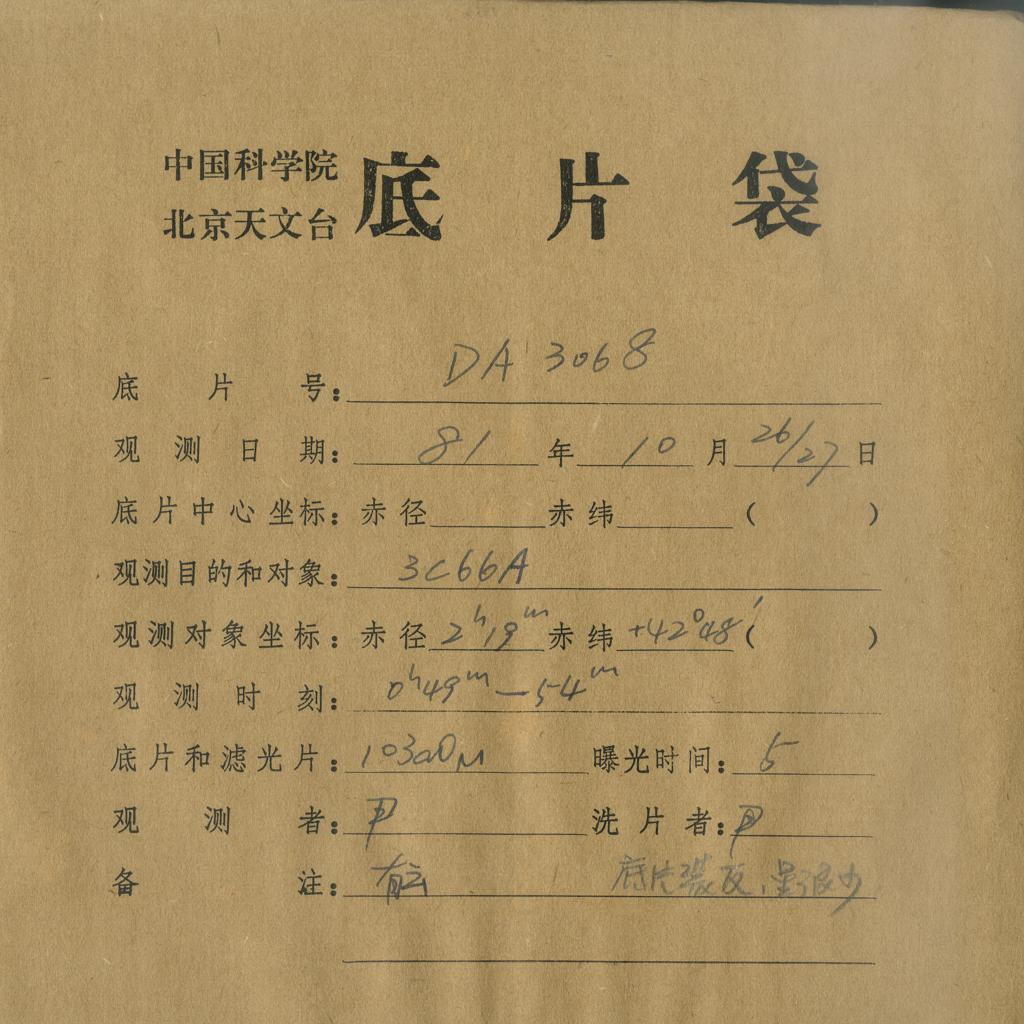 中国科学院
北京天文台
底片袋
底片号：DA 3068
观测日期：81年10月26/27日
底片中心坐标：赤径 赤纬 （ ）
观测目的和对象：3C66A
观测对象坐标：赤径 2ʰ19ᵐ 赤纬 +42°48′（ ）
观测时刻：0ʰ49ᵐ—54ᵐ
底片和滤光片：103aO 曝光时间：5
观测者： 洗片者：
备注：有云 底片装反，星很少